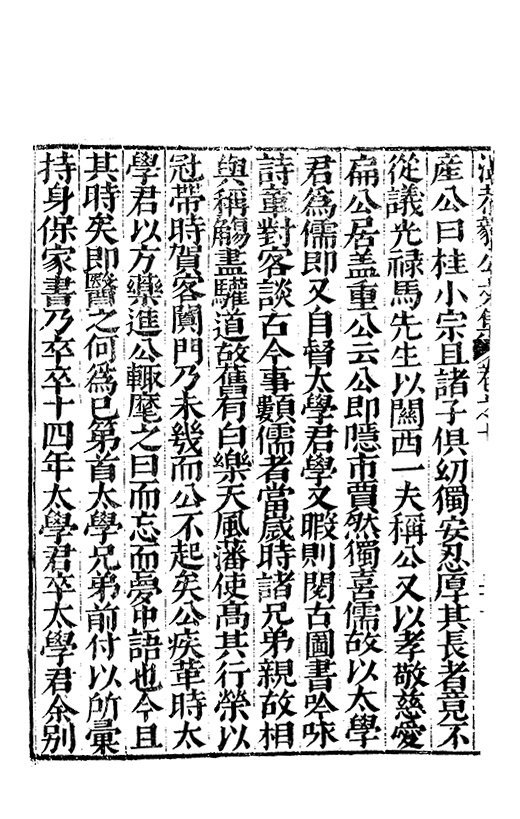 産公曰桂小宗且諸子俱幼獨安忍厚其長者竟不
從議光祿馬先生以關西一夫稱公又以孝敬慈愛
扁公居盖重公云公即隱市賈然獨喜儒故以太學
君爲儒即又自督太學君學又暇則閱古圖書吟咏
詩章對客談古今事數儒者當歲時諸兄弟親故相
與稱觴盡驩道故舊有白樂天風藩使高其行榮以
冠帶時賀客闐門乃未幾而公不起矣公疾革時太
學君以方藥進公輒麾之曰而忘而憂中語也今且
其時矣即醫之何爲已第首太學兄弟前付以所彙
持身保家書乃卒卒十四年太學君卒太學君余别